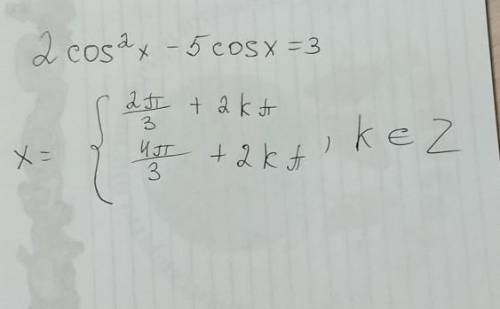 2 cos²x - 5 cosx = 3
x = { 2π/3 + 2kπ
4π/3 + 2kπ , k ∈ Z